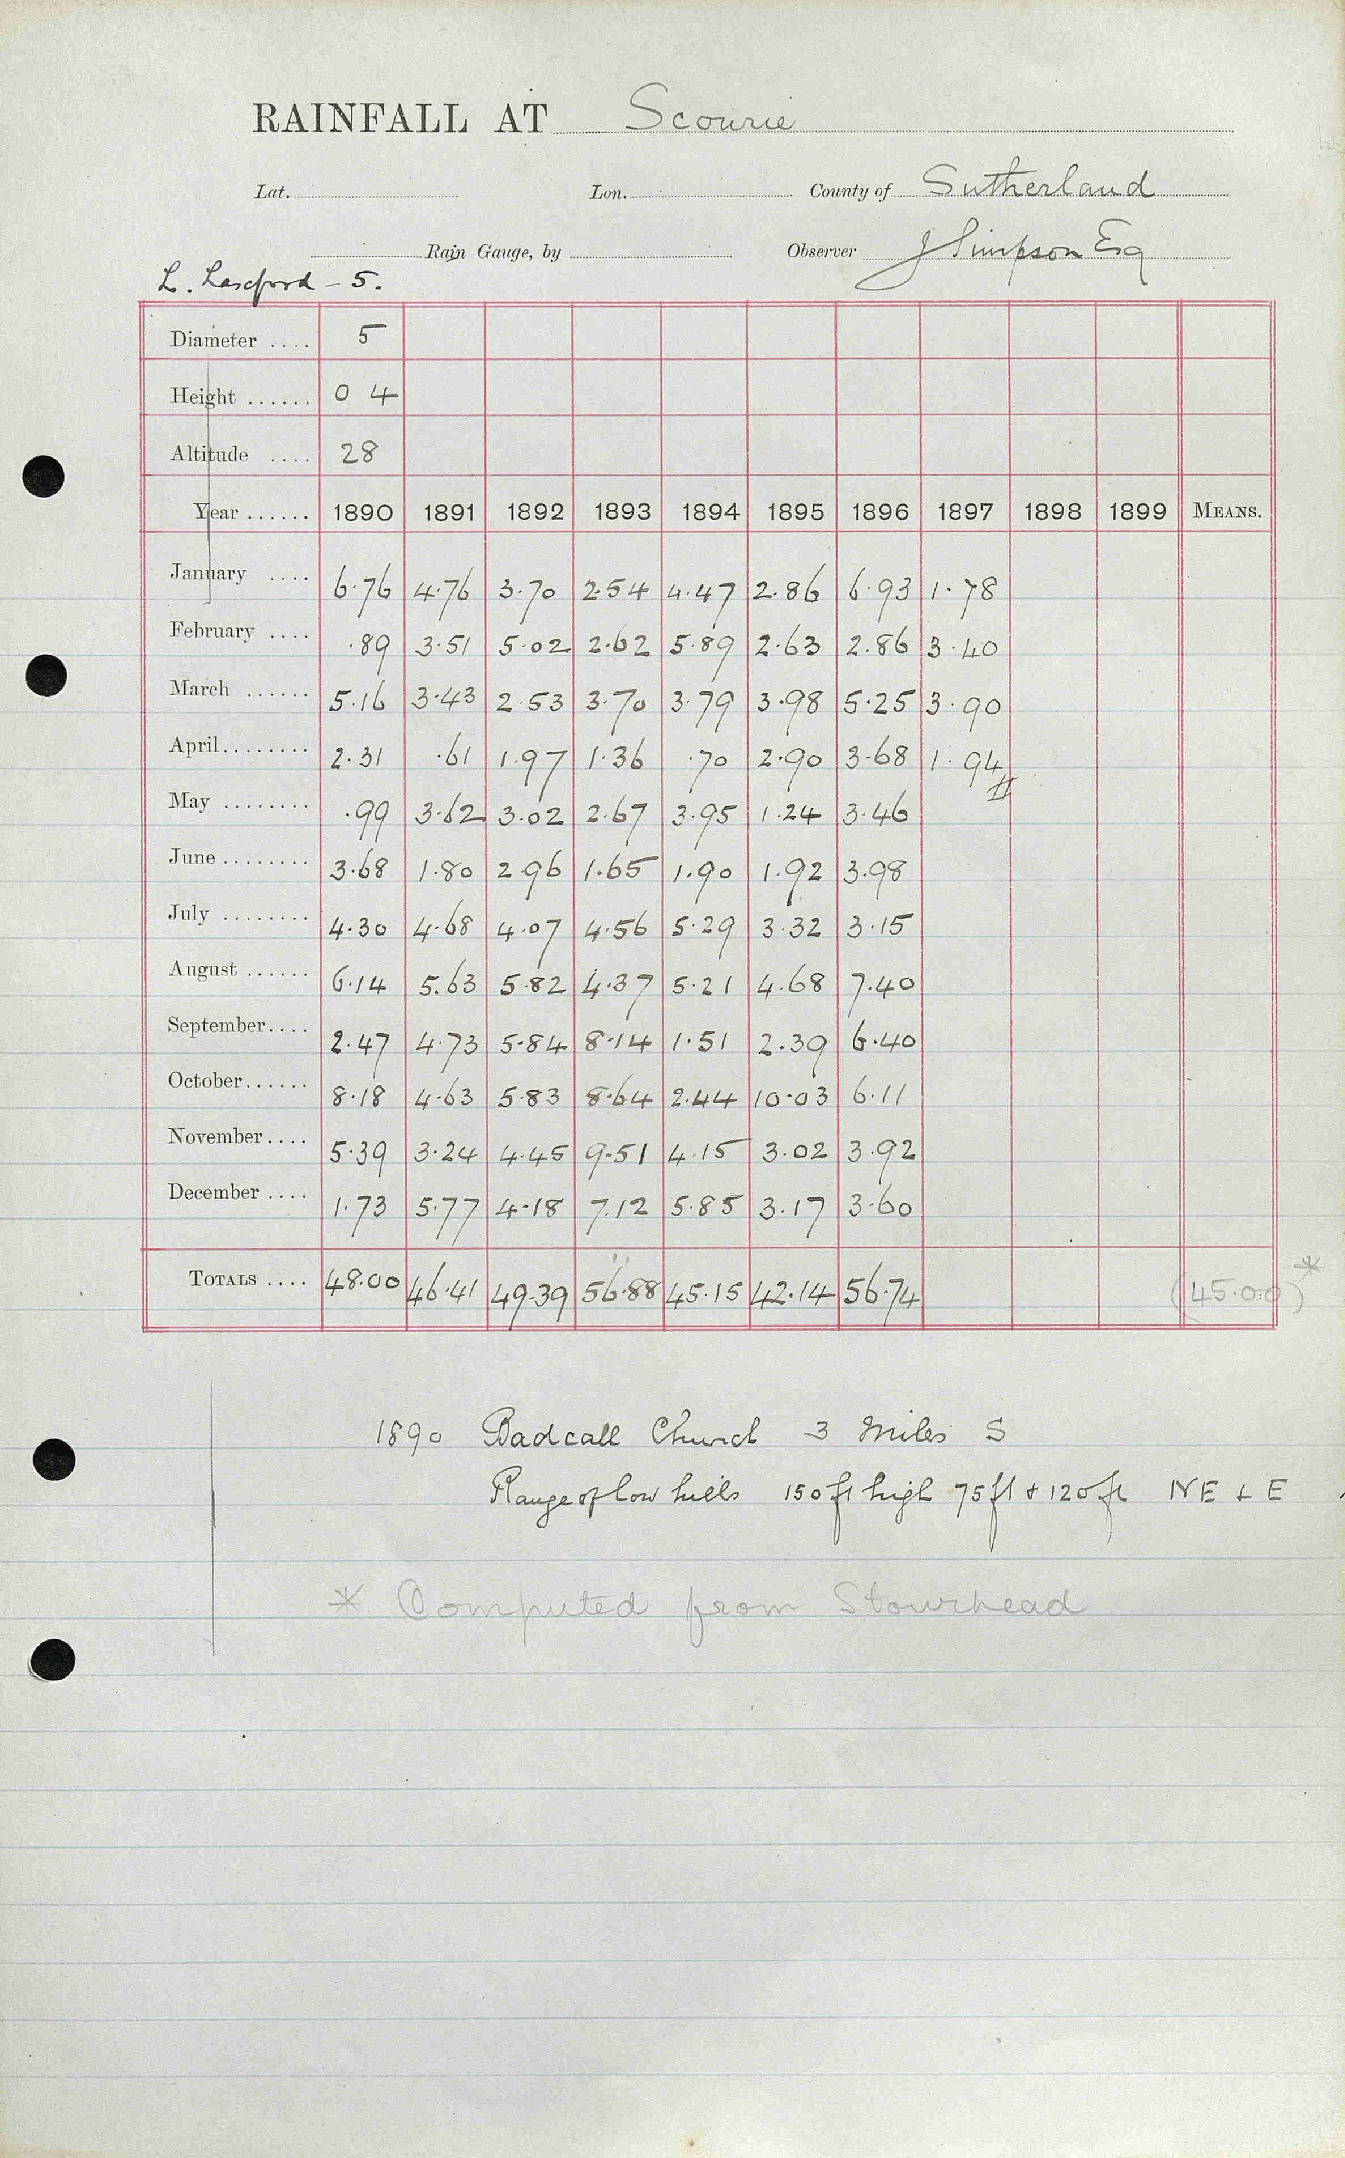 RAINFALL AT Scourie
Lat. Lon. County of Sutherland
Rain Gauge, by Observer J Simpson Esq
L. Laxford - 5.
Diameter .... 5
Height ...... 0 4
Altitude .... 28
Year ...... 1890 1891 1892 1893 1894 1895 1896 1897 1898 1899 MEANS.
January .... 6.76 4.76 3.70 2.54 4.47 2.86 6.93 1.78
February .... .89 3.51 5.02 2.62 5.89 2.63 2.86 3.40
March ...... 5.16 3.43 2.53 3.70 3.79 3.98 5.25 3.90
April ........ 2.31 .61 1.97 1.36 .70 2.90 3.68 1.94
May ........ .99 3.62 3.02 2.67 3.95 1.24 3.46
June ........ 3.68 1.80 2.96 1.65 1.90 1.92 3.98
July ........ 4.30 4.68 4.07 4.56 5.29 3.32 3.15
August ...... 6.14 5.63 5.82 4.37 5.21 4.68 7.40
September .... 2.47 4.73 5.84 8.14 1.51 2.39 6.40
October ...... 8.18 4.63 5.83 8.64 2.44 10.03 6.11
November .... 5.39 3.24 4.45 9.51 4.15 3.02 3.92
December .... 1.73 5.77 4.18 7.12 5.85 3.17 3.60
TOTALS .... 48.00 46.41 49.39 56.88 45.15 42.14 56.74 (45.00)*
1890 Badcall Church 3 Miles S
Range of low hills 150 ft high 75 ft & 120 ft NE & E
* Computed from Stourhead